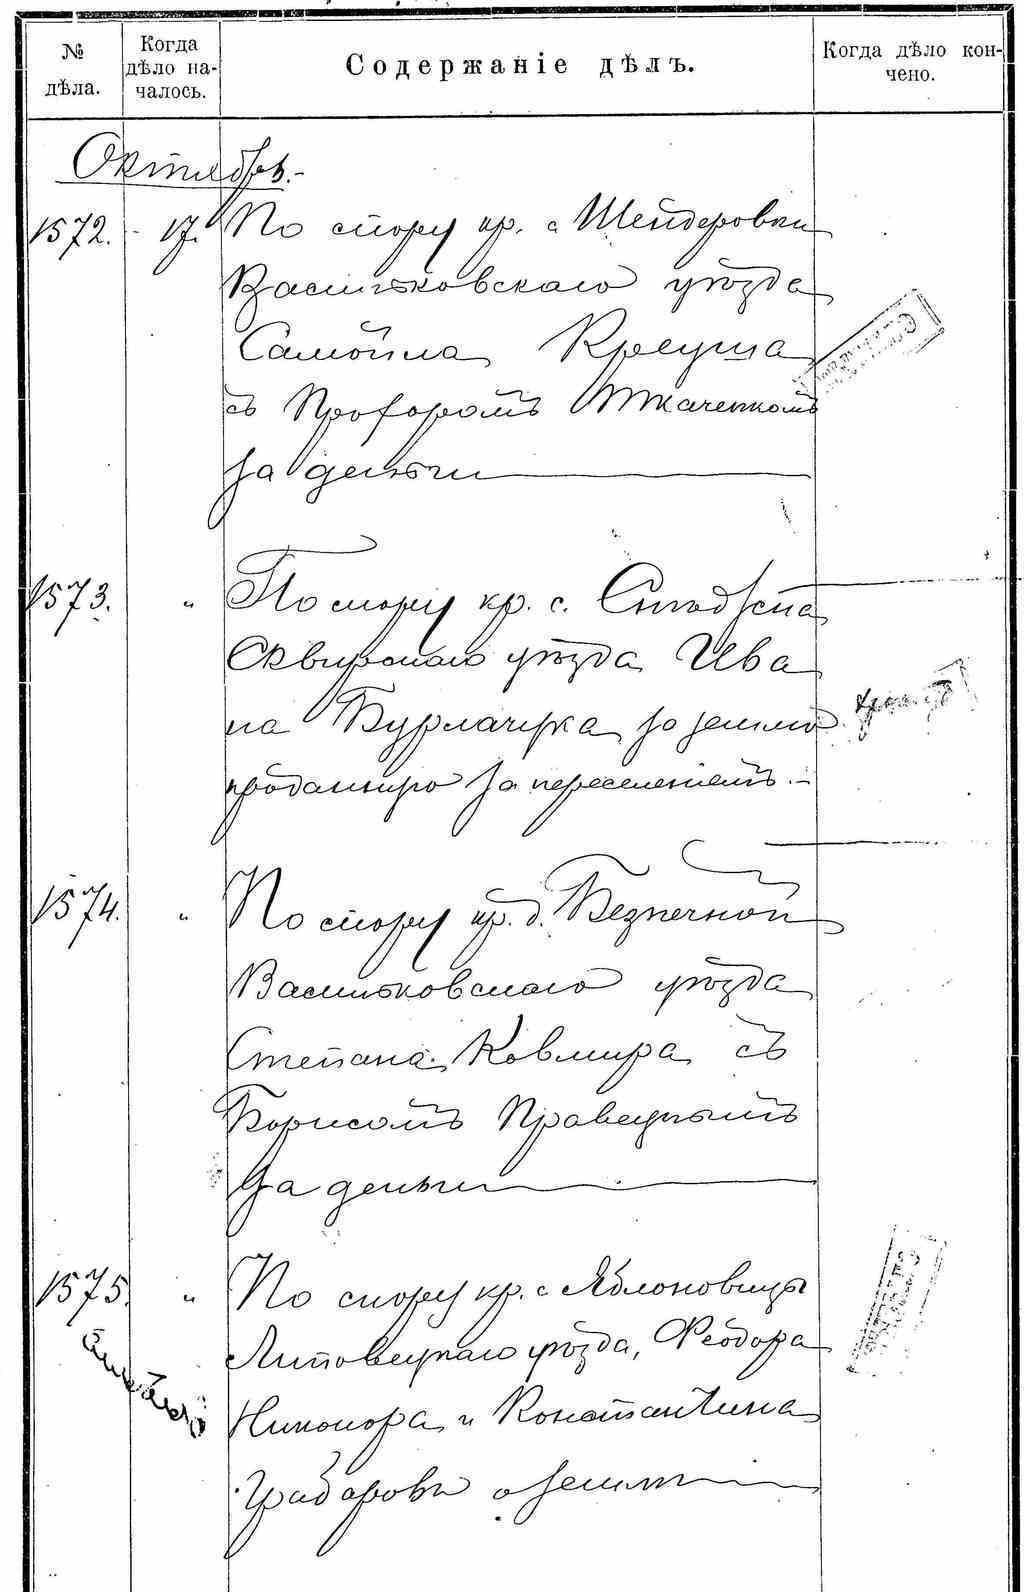 № дѣла.
Когда дѣло началось.
Содержаніе дѣлъ.
Когда дѣло кончено.
Октябрь.-
1572. - 17. По спору кр. с Шендеровки
Васильковскаго уѣзда
Самойла Креуша
съ Прохоромъ Ткаченкомъ
за деньги
1573. " По спору кр. с.
Сквирскаго уѣзда Ива
на Бурлачука за землю
проданную за переселеніемъ.-
1574. " По спору кр. д. Безпечной
Васильковскаго уѣзда
Степана Ковмира съ
Борисомъ Правецкимъ
за деньги
1575. " По спору кр. с Яблоновицы
Липовецкаго уѣзда, Феодора
Никонора и Константина
о земли